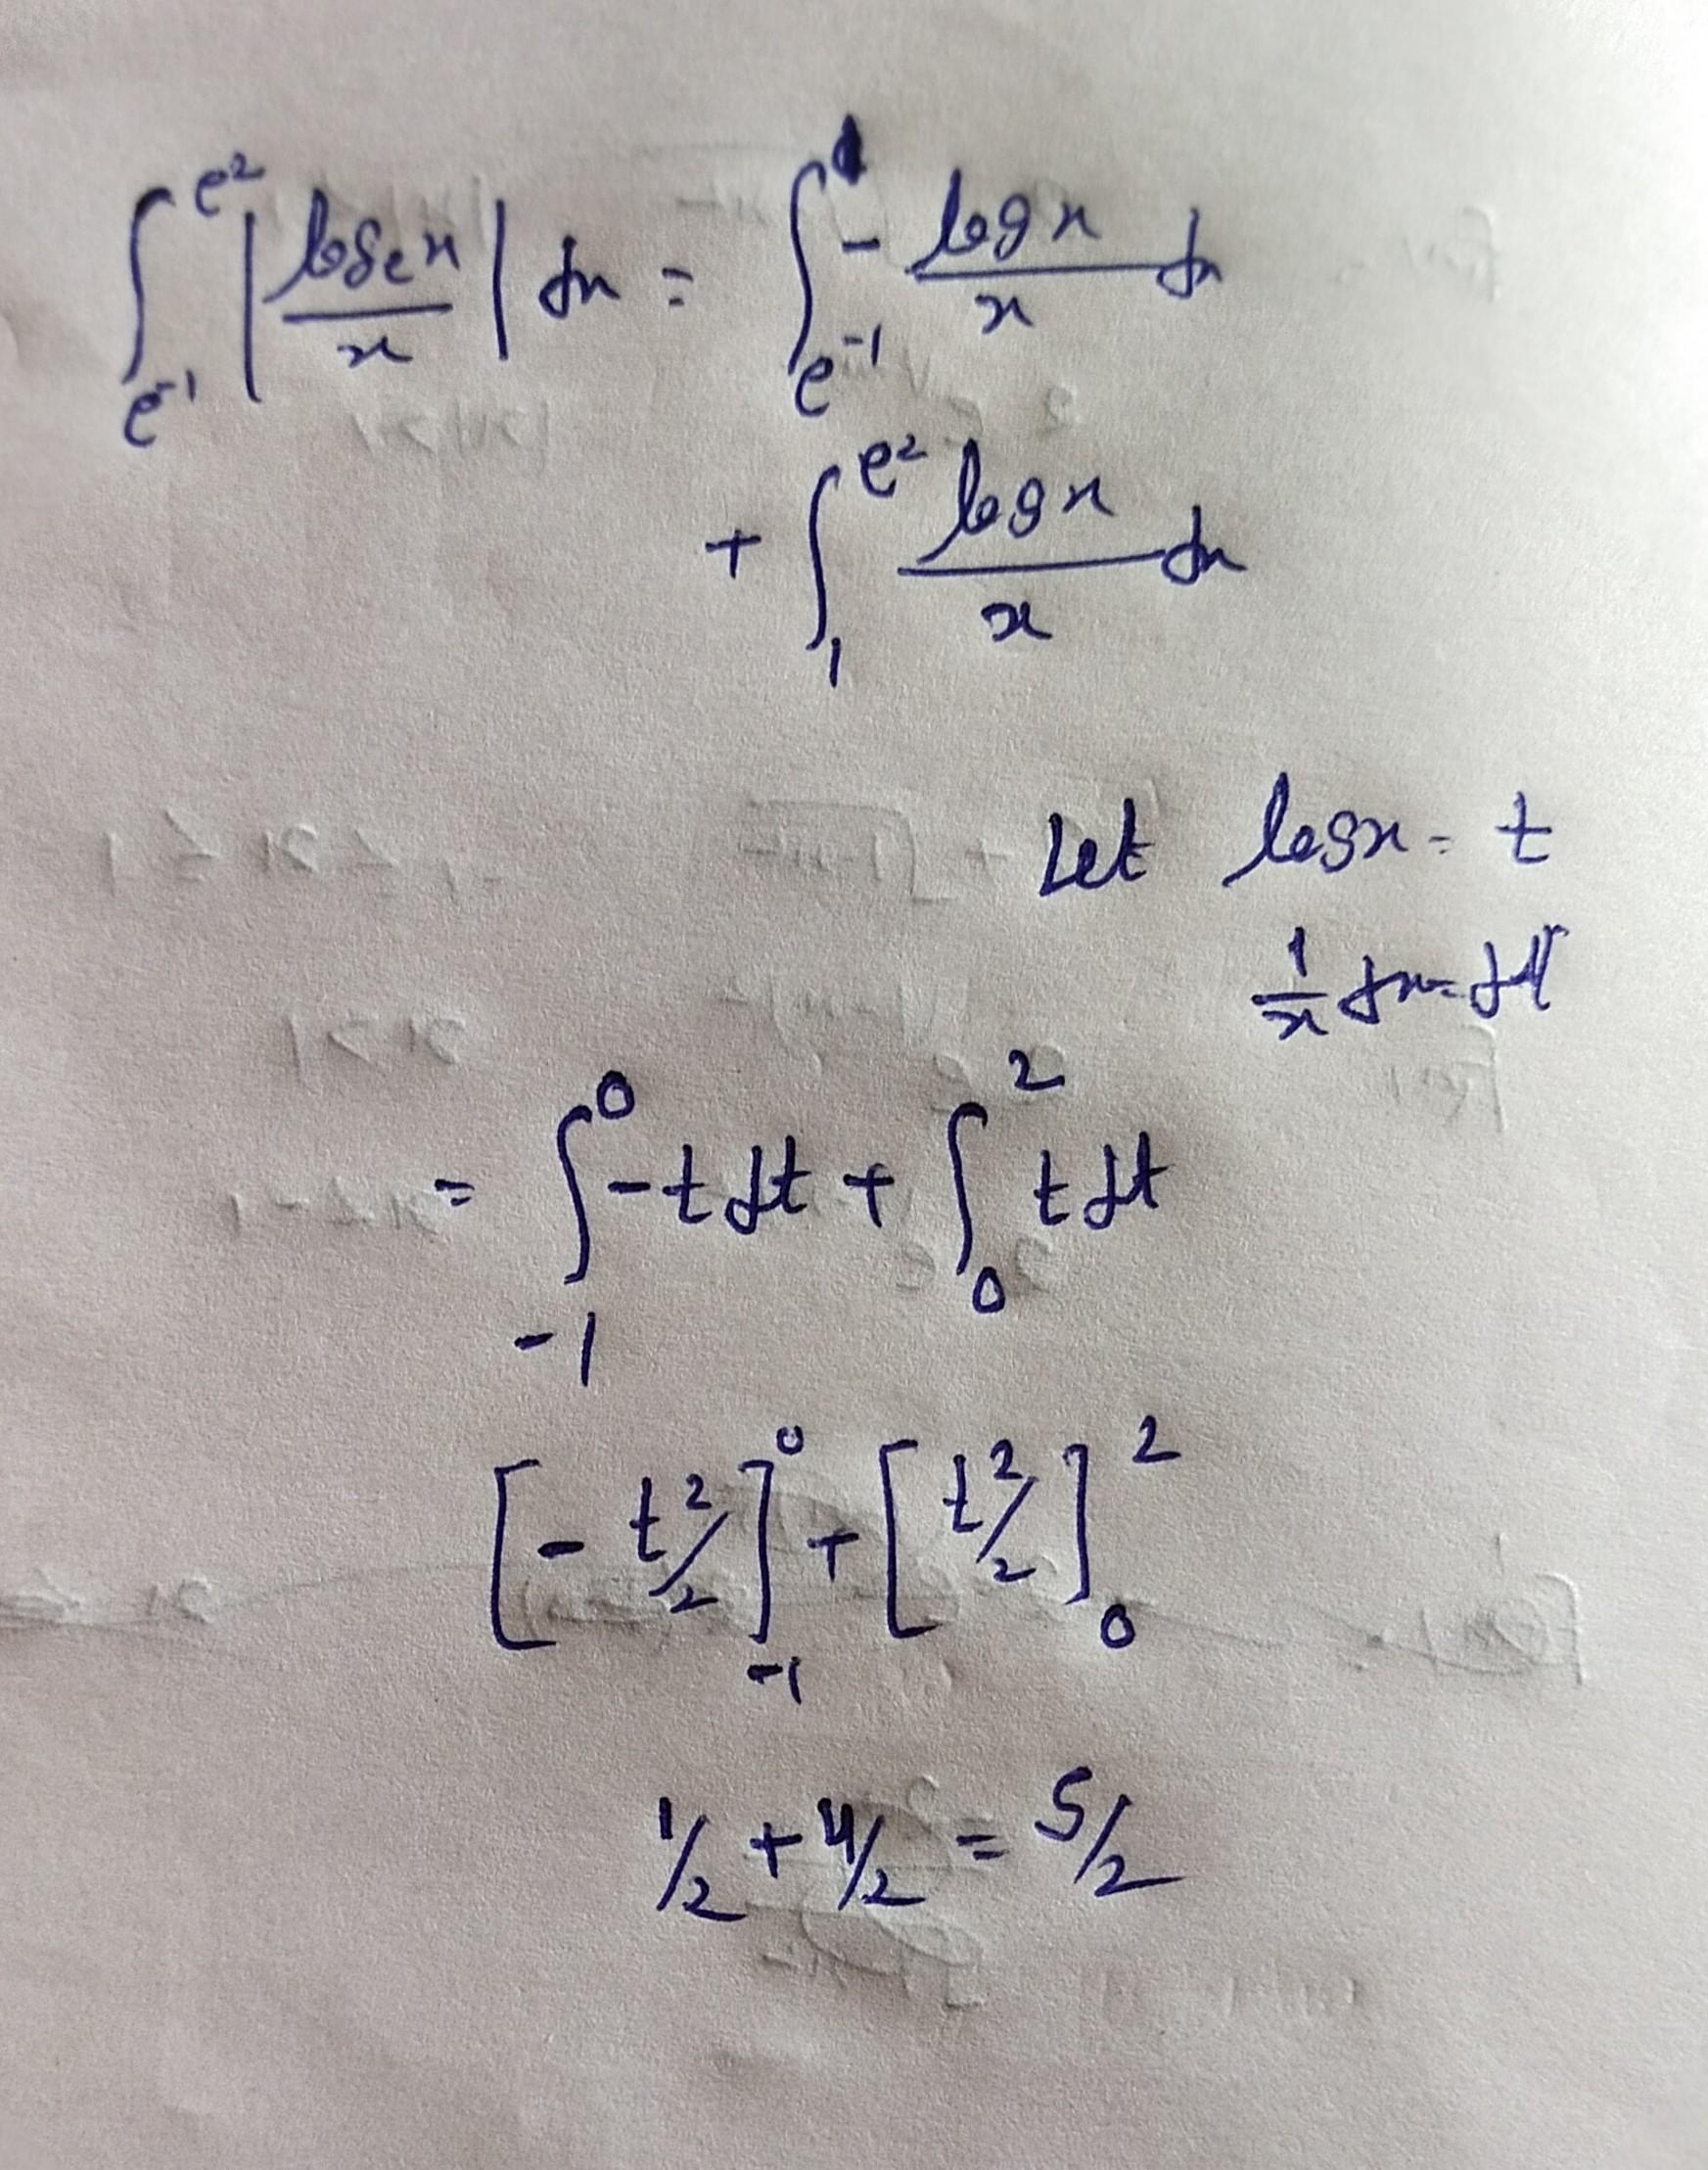 ∫_{e^{-1}}^{e^2} |log_e x / x| dx = ∫_{e^{-1}}^{1} - log x / x dx
+ ∫_{1}^{e^2} log x / x dx
Let log x = t
1/x dx = dt
= ∫_{-1}^{0} -t dt + ∫_{0}^{2} t dt
[-t^2/2]_{-1}^{0} + [t^2/2]_{0}^{2}
1/2 + 4/2 = 5/2